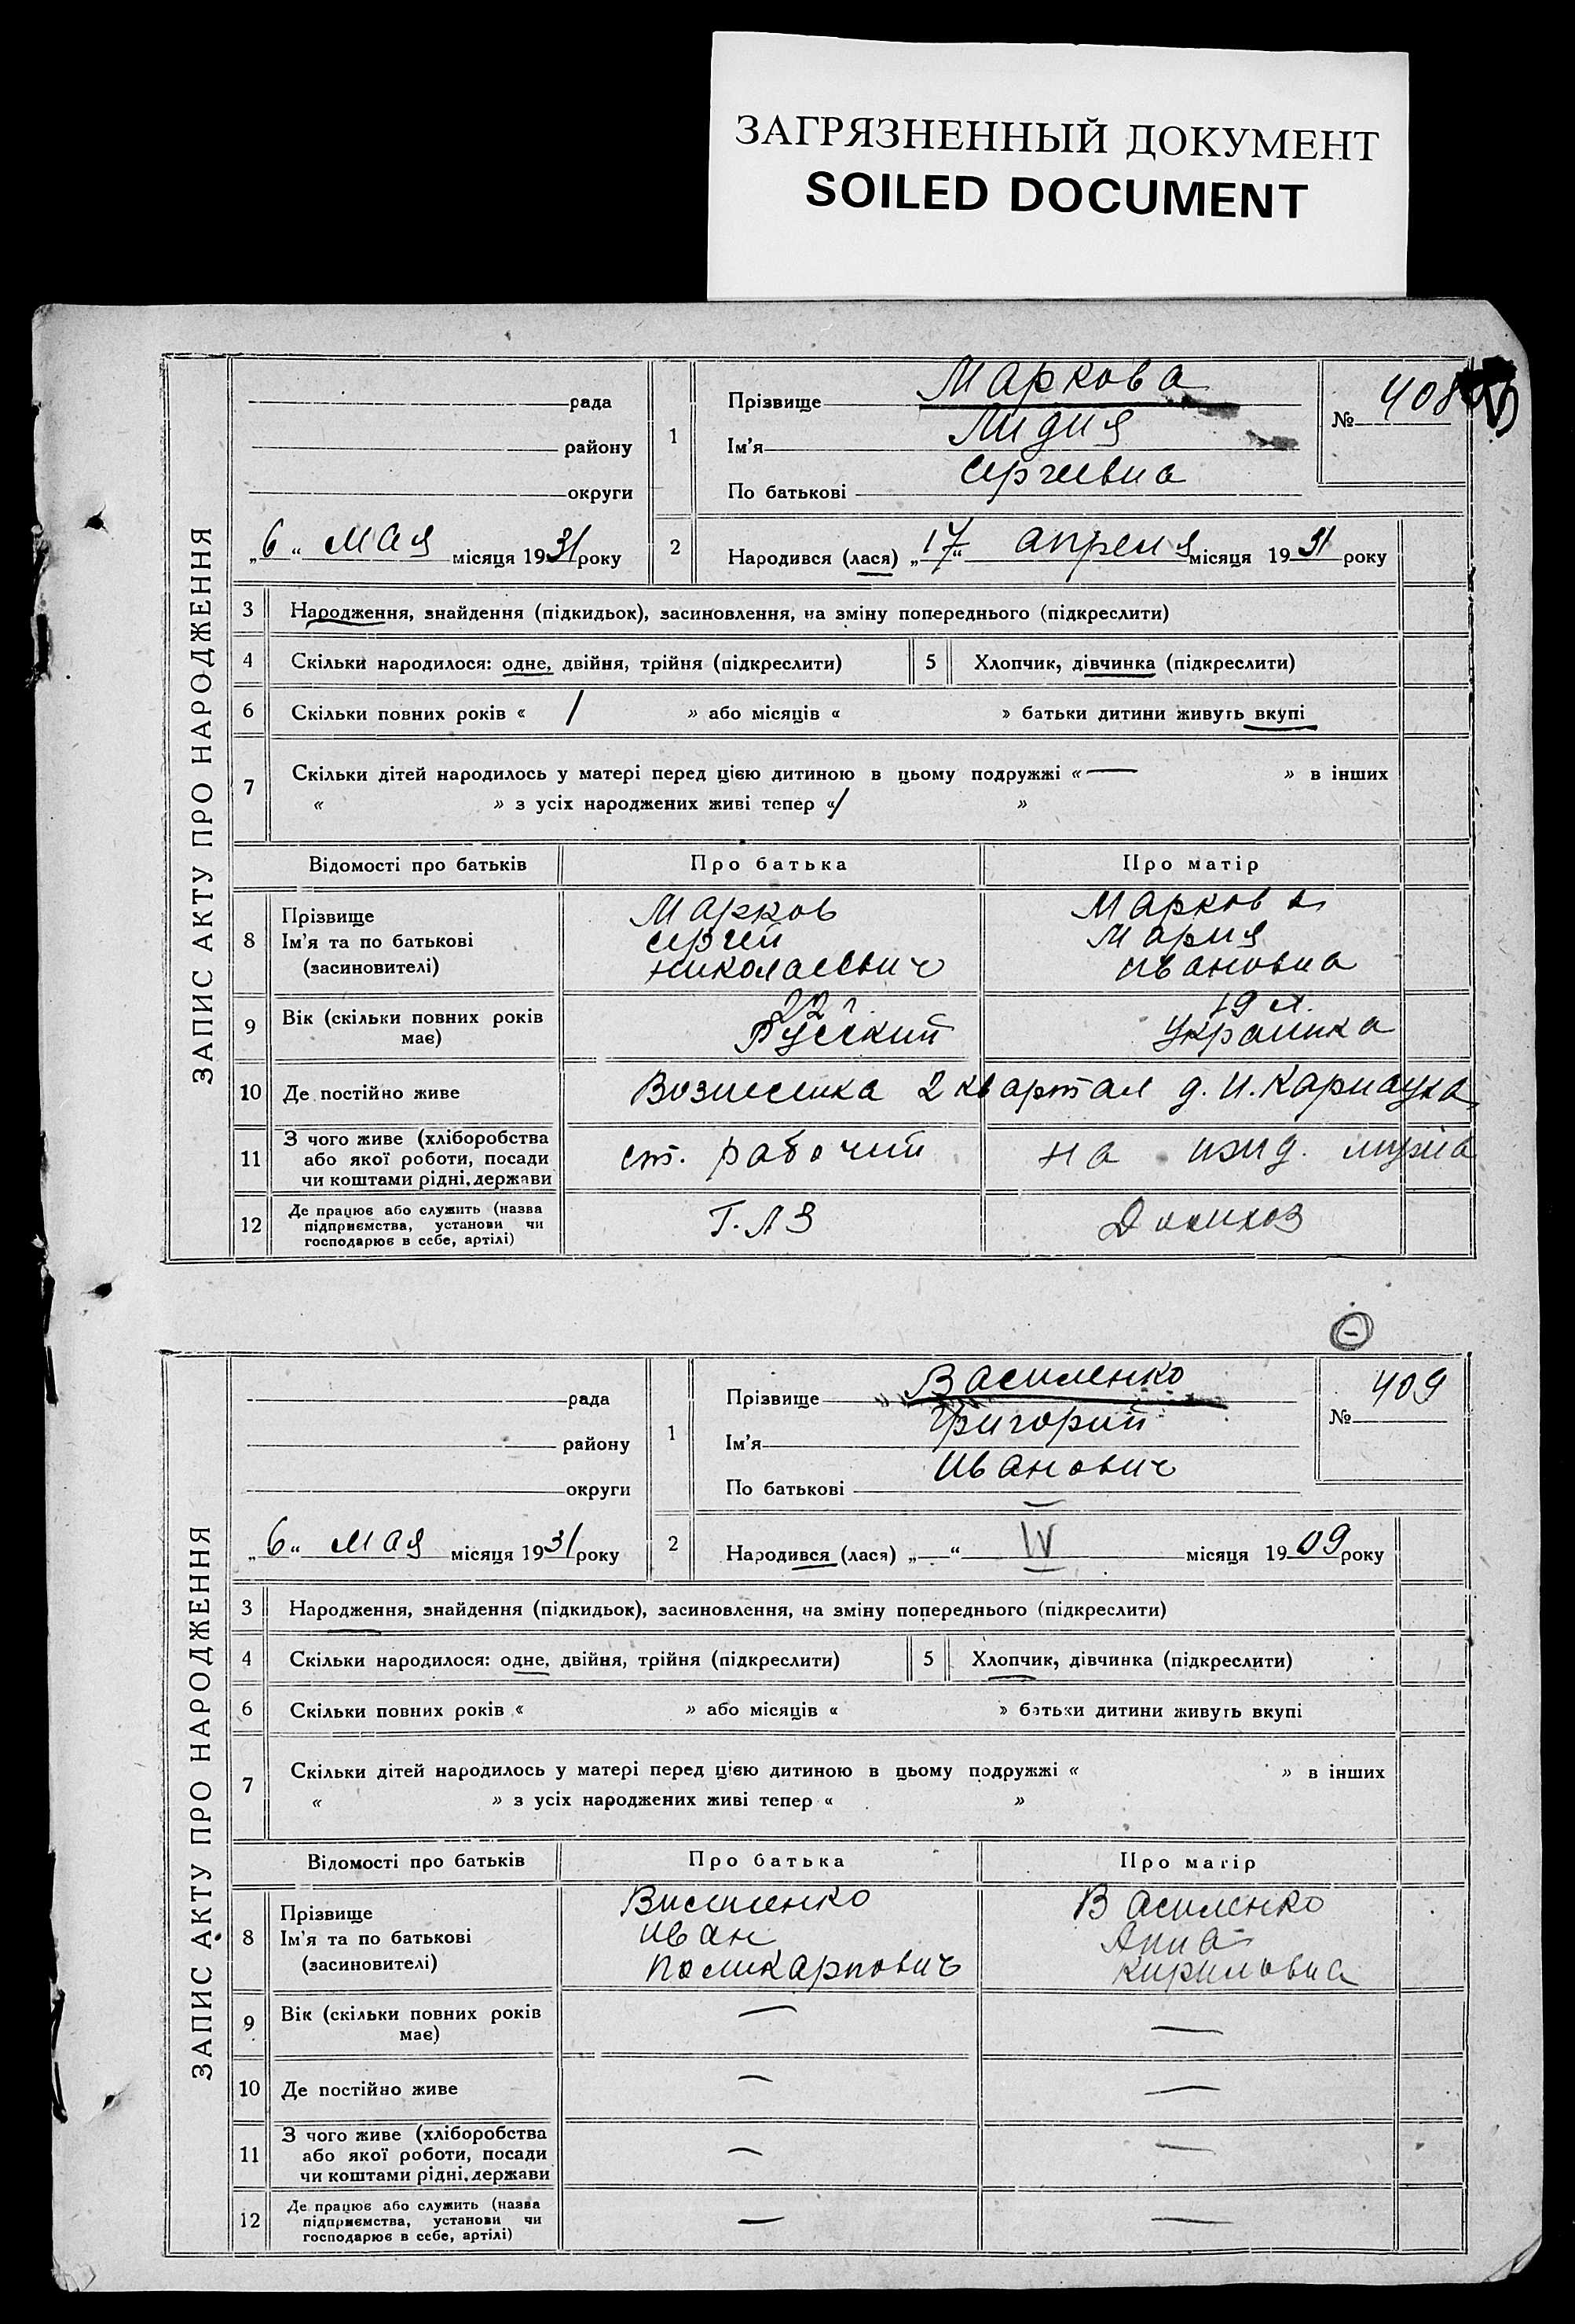 ЗАГРЯЗНЕННЫЙ ДОКУМЕНТ
SOILED DOCUMENT
ЗАПИС АКТУ ПРО НАРОДЖЕННЯ
рада
району
округи
„6“ мая місяця 1931 року
1
Прізвище Маркова
Ім'я Лидия
По батькові Сергеевна
№ 408
2
Народився (лася) „17“ апреля місяця 1931 року
3 Народження, знайдення (підкидьок), засиновлення, на зміну попереднього (підкреслити)
4 Скільки народилося: одне, двійня, трійня (підкреслити) 5 Хлопчик, дівчинка (підкреслити)
6 Скільки повних років « 1 » або місяців « » батьки дитини живуть вкупі
7 Скільки дітей народилось у матері перед цією дитиною в цьому подружжі « — » в інших
« » з усіх народжених живі тепер «1 »
Відомості про батьків Про батька Про матір
8 Прізвище
Ім'я та по батькові
(засиновителі)
Марков
Сергей
Николаевич
Маркова
Мария
Ивановна
9 Вік (скільки повних років
має)
22 г.
Русский
19 л.
Украинка
10 Де постійно живе Вознесенка 2 квартал д. И. Карнауха
11 З чого живе (хліборобства
або якої роботи, посади
чи коштами рідні, держави
ст. рабочий
на ижд. мужа
12 Де працює або служить (назва
підприємства, установи чи
господарює в себе, артілі)
Г.ЛЗ
Домхоз
ЗАПИС АКТУ ПРО НАРОДЖЕННЯ
рада
району
округи
„6“ мая місяця 1931 року
1
Прізвище Василенко
Ім'я Григорий
По батькові Иванович
№ 409
2
Народився (лася) „—“ IV місяця 1909 року
3 Народження, знайдення (підкидьок), засиновлення, на зміну попереднього (підкреслити)
4 Скільки народилося: одне, двійня, трійня (підкреслити) 5 Хлопчик, дівчинка (підкреслити)
6 Скільки повних років « » або місяців « » батьки дитини живуть вкупі
7 Скільки дітей народилось у матері перед цією дитиною в цьому подружжі « » в інших
« » з усіх народжених живі тепер « »
Відомості про батьків Про батька Про матір
8 Прізвище
Ім'я та по батькові
(засиновителі)
Василенко
Иван
Поликарпович
Василенко
Анна
Кириловна
9 Вік (скільки повних років
має)
— —
10 Де постійно живе — —
11 З чого живе (хліборобства
або якої роботи, посади
чи коштами рідні, держави
— —
12 Де працює або служить (назва
підприємства, установи чи
господарює в себе, артілі)
— —